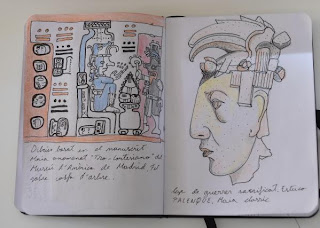 Dibuix basat en el manuscrit
Maia anomenat "Tro-Cortesiano del
Museu d'Amèrica de Madrid
sobre d'arbre.
de guerrer sacrificat. Estuco
PALENQUE. Maia clàssic